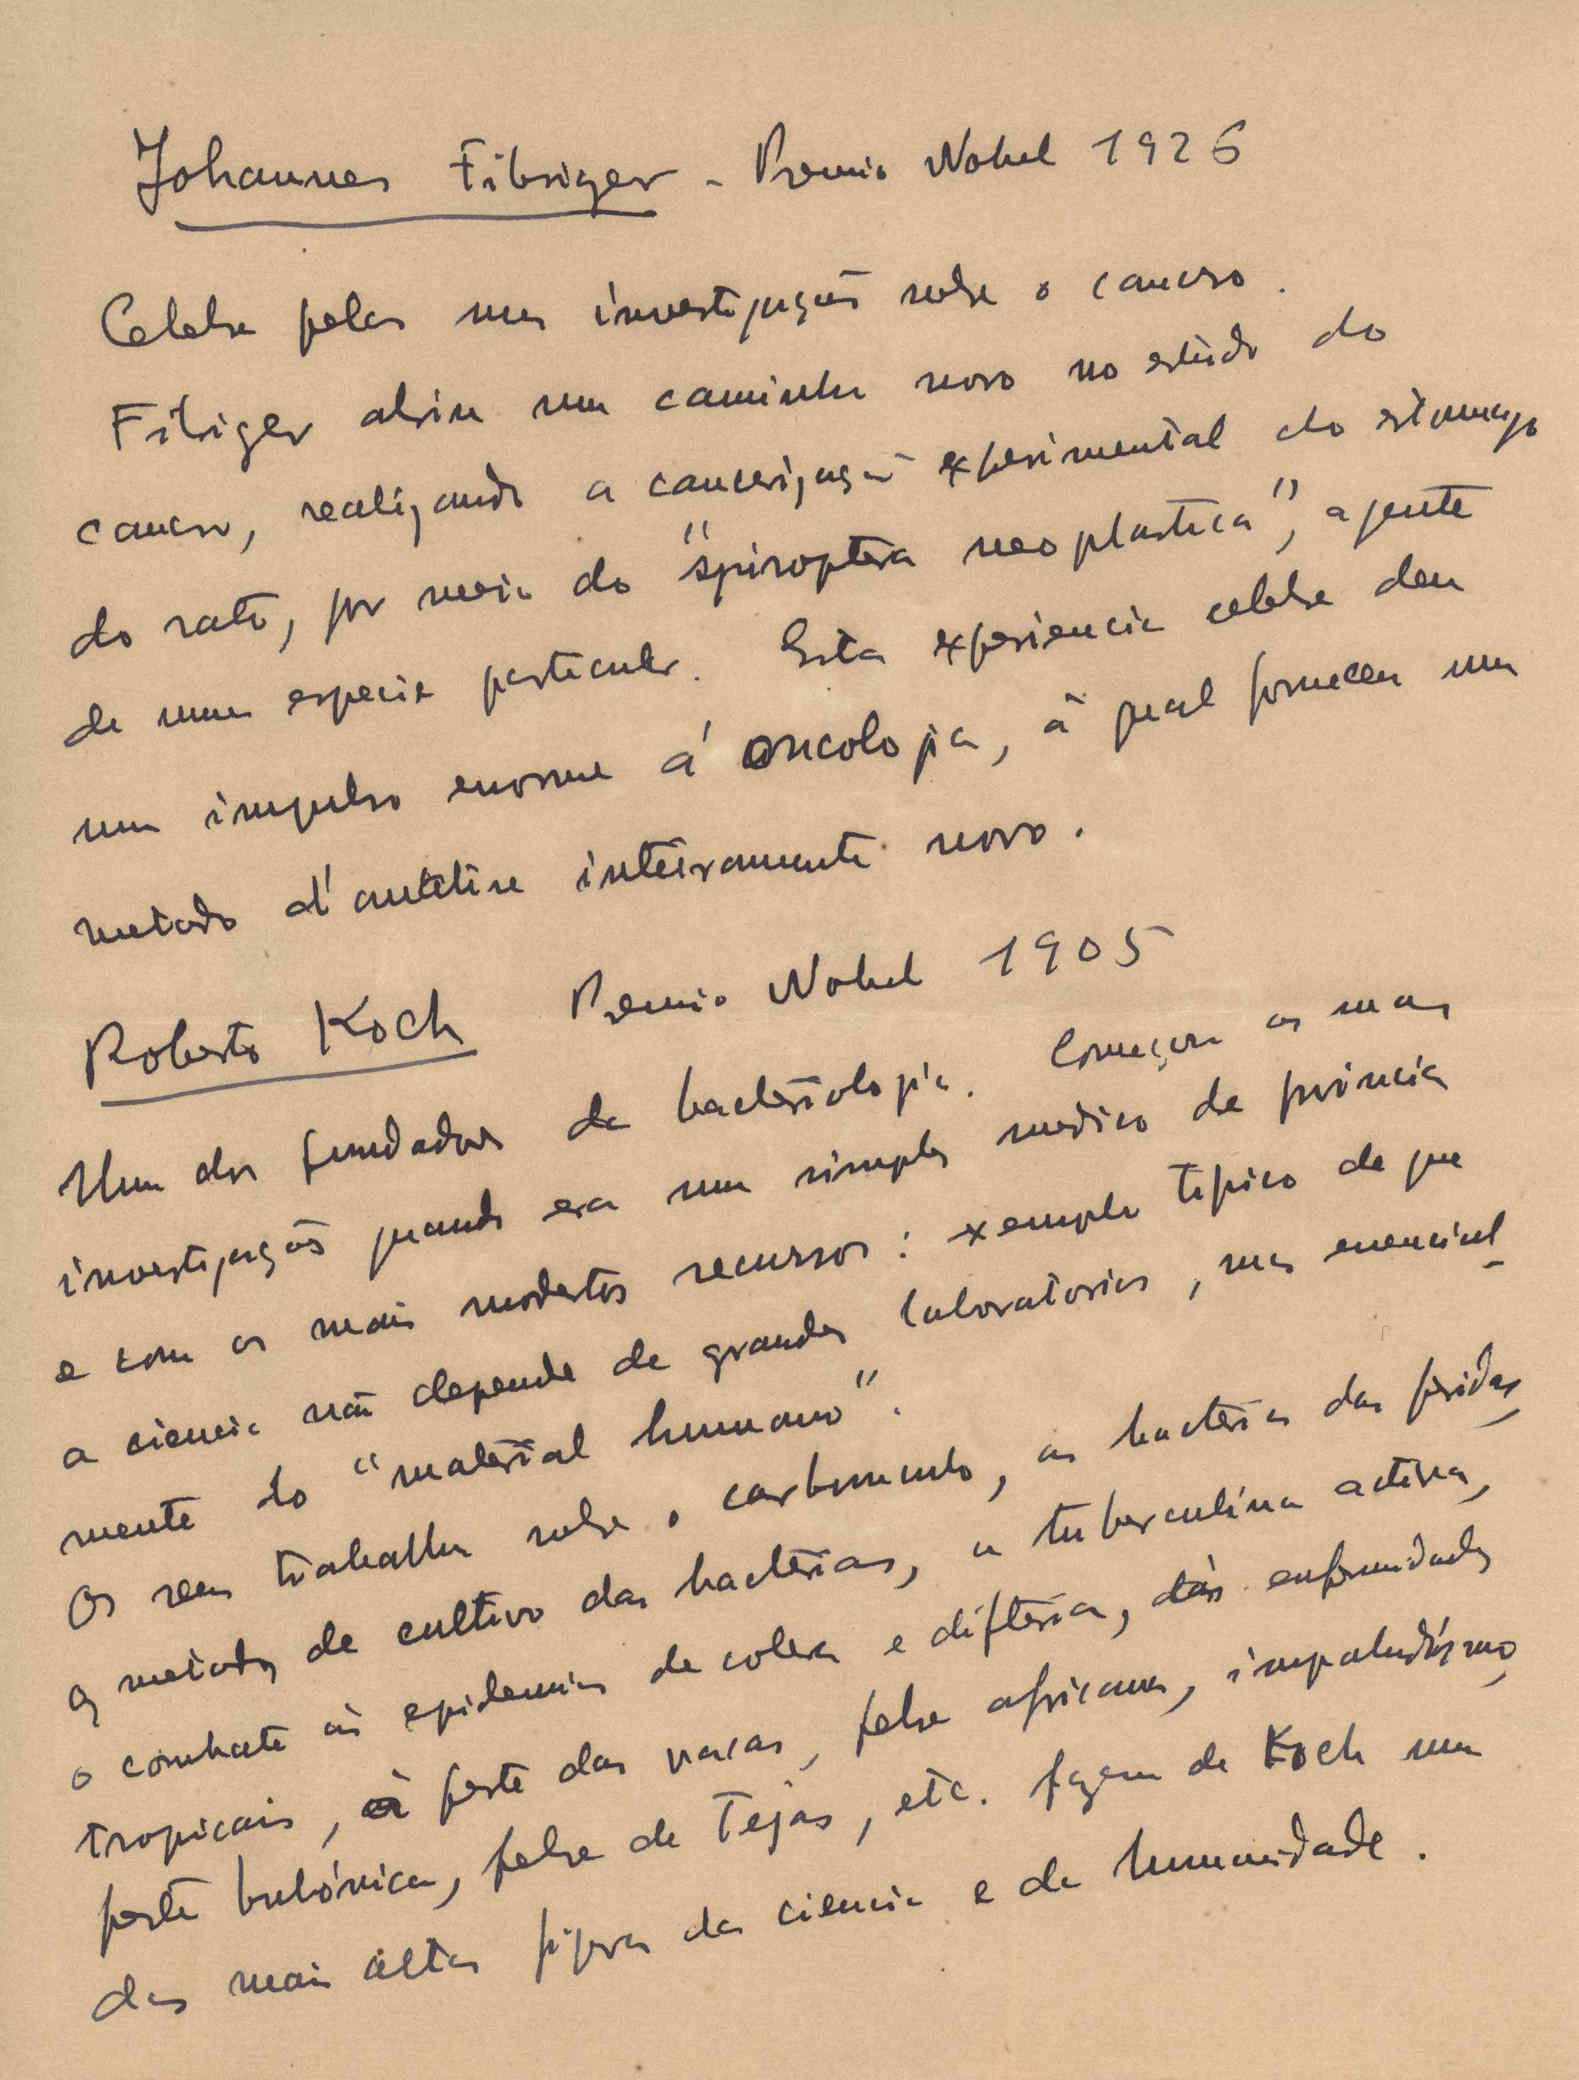 Johannes Fibiger - Premio Nobel 1926
Celebre pelas suas investigações sobre o cancro.
Fibiger abriu um caminho novo no estudo do
cancro, realizando a cancerização experimental do estomago
do rato, por meio do "spiroptera neoplastica", agente
de uma especie particular. Esta experiencia celebre deu
um impulso enorme á oncologia, à qual forneceu um
metodo d'analise inteiramente novo.
Roberto Koch Premio Nobel 1905
Um dos fundadores da bacteriologia. Começou as suas
investigações quando era um simples medico de provincia
e com os mais modestos recursos: exemplo tipico de que
a ciencia não depende de grandes laboratorios, mas essencial-
mente do "material humano".
Os seus trabalhos sobre o carbunculo, as bacterias das feridas,
os metodos de cultivo das bacterias, a tuberculina activa,
o combate às epidemias de colera e difteria, às enfermidades
tropicais, à peste das vacas, febre africana, impaludismo,
peste bubónica, febre de Tejas, etc. fazem de Koch uma
das mais altas figuras da ciencia e da humanidade.